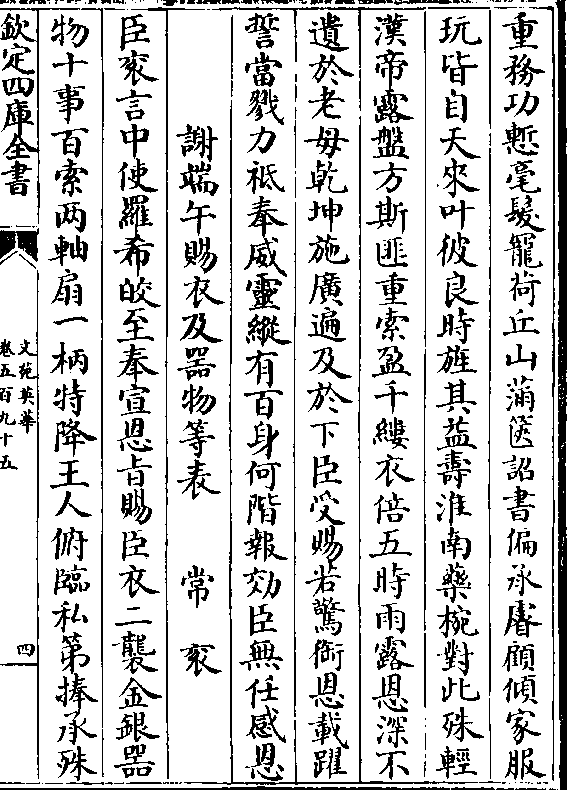 重務功慙毫髮寵荷丘山蒲篋詔書偏承睿顧傾家服
玩皆自天來叶彼良時旌其益壽淮南藥椀對此殊輕
漢帝露盤方斯匪重索盈千縷衣倍五時雨露恩深不
遺於老母乾坤施廣遍及於下臣受賜若驚銜恩載躍
誓當戮力祗奉威靈縱有百身何階報効臣無任感恩
謝端午賜衣及器物等表 常衮
臣衮言中使羅希皎至奉宣恩旨賜臣衣二襲金銀器
物十事百索两軸扇一柄特降王人俯臨私第捧承殊
欽定四庫全書
文苑英華
卷五百九十五
四